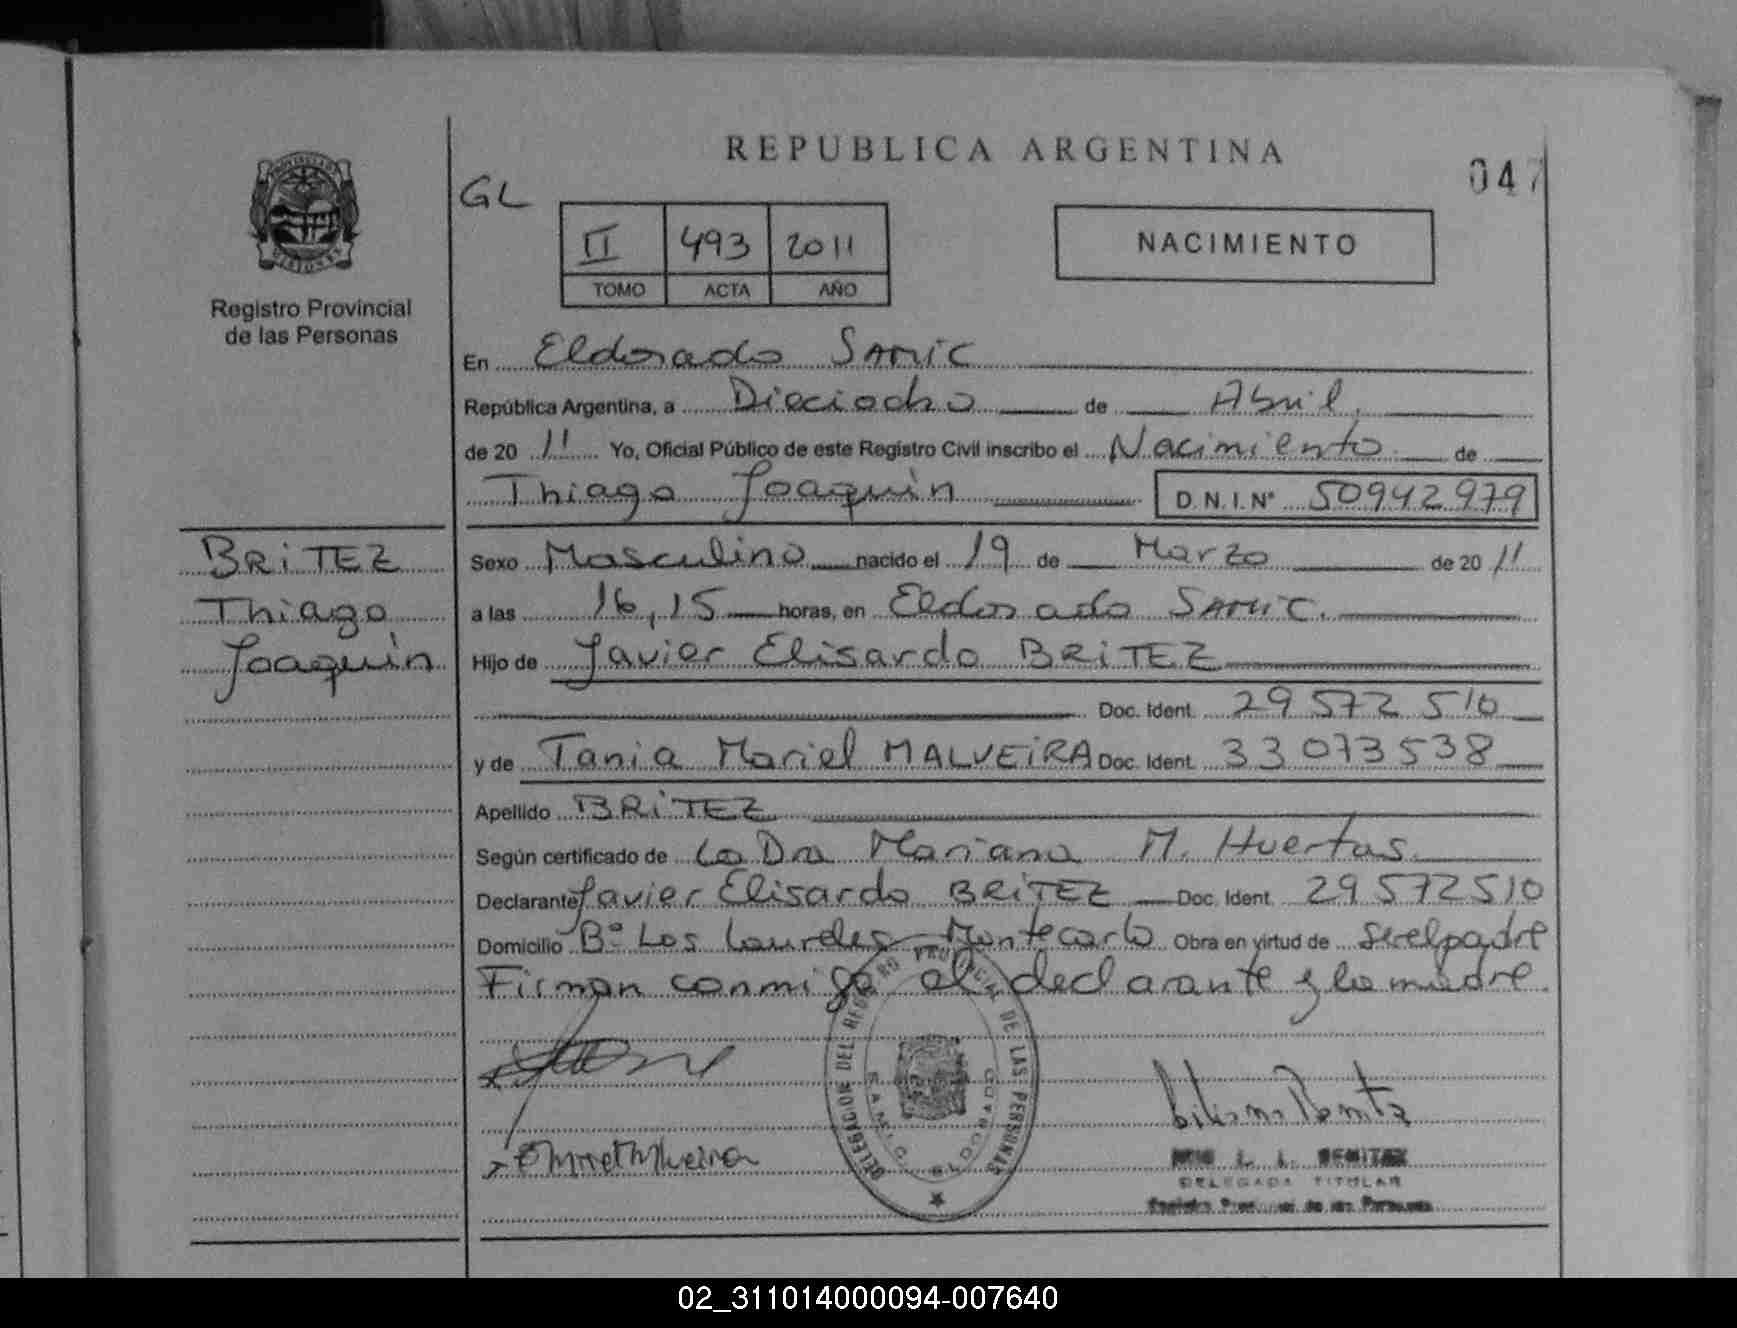 REPUBLICA ARGENTINA
047
GL
II 493 2011
TOMO ACTA AÑO
NACIMIENTO
Registro Provincial
de las Personas
En Eldorado SAMIC
República Argentina, a Dieciocho de Abril,
de 20 11 Yo, Oficial Público de este Registro Civil inscribo el Nacimiento de
Thiago Joaquín D.N.I.Nº 50942979
BRITEZ
Thiago
Joaquín
Sexo Masculino nacido el 19 de Marzo de 20 11
a las 16,15 horas, en Eldorado SAMIC.
Hijo de Javier Elisardo BRITEZ
Doc. Ident. 29 572 510
y de Tania Mariel MALVEIRA Doc. Ident. 33 073 538
Apellido BRITEZ
Según certificado de La Dra Mariana M. Huertas
Declarante Javier Elisardo BRITEZ Doc. Ident. 29 572 510
Domicilio Bº Los Laureles Montecarlo Obra en virtud de Ser el padre
Firman conmigo el declarante y la madre.
DELEGACION DEL REGISTRO PROVINCIAL DE LAS PERSONAS
L. I. BENITEZ
DELEGADA TITULAR
02_311014000094-007640